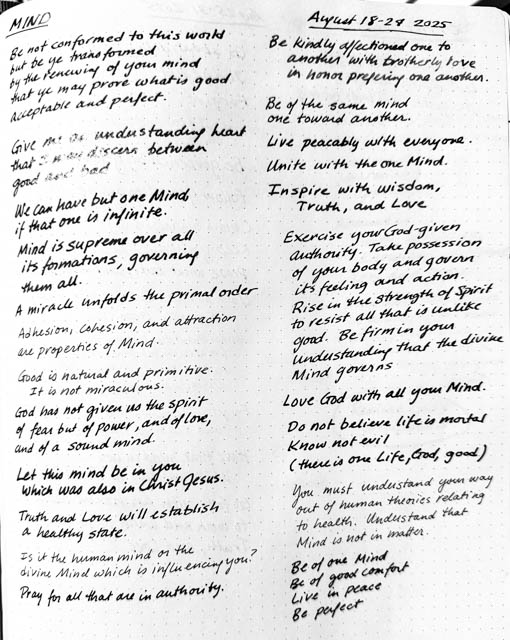 MIND
Be not conformed to this world
but be ye transformed
by the renewing of your mind
that ye may prove what is good
acceptable and perfect.
Give me an understanding heart
that I may discern between
good and bad
We can have but one Mind,
if that one is infinite.
Mind is supreme over all
its formations, governing
them all.
A miracle unfolds the primal order
Adhesion, cohesion, and attraction
are properties of Mind.
Good is natural and primitive.
It is not miraculous.
God has not given us the spirit
of fear but of power, and of love,
and of a sound mind.
Let this mind be in you
which was also in Christ Jesus.
Truth and Love will establish
a healthy state.
Is it the human mind or the
divine Mind which is influencing you?
Pray for all that are in authority.
August 18-24 2025
Be kindly affectioned one to
another with brotherly love
in honor prefering one another.
Be of the same mind
one toward another.
Live peacably with everyone.
Unite with the one Mind.
Inspire with wisdom,
Truth, and Love
Exercise your God-given
authority. Take possession
of your body and govern
its feeling and action.
Rise in the strength of Spirit
to resist all that is unlike
good. Be firm in your
understanding that the divine
Mind governs
Love God with all your Mind.
Do not believe life is mortal
Know not evil
(there is one Life, God, good)
You must understand your way
out of human theories relating
to health. Understand that
Mind is not in matter.
Be of one Mind
Be of good comfort
Live in peace
Be perfect